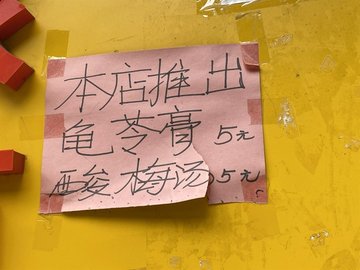 本店推出
龟苓膏 5元
酸梅汤 5元